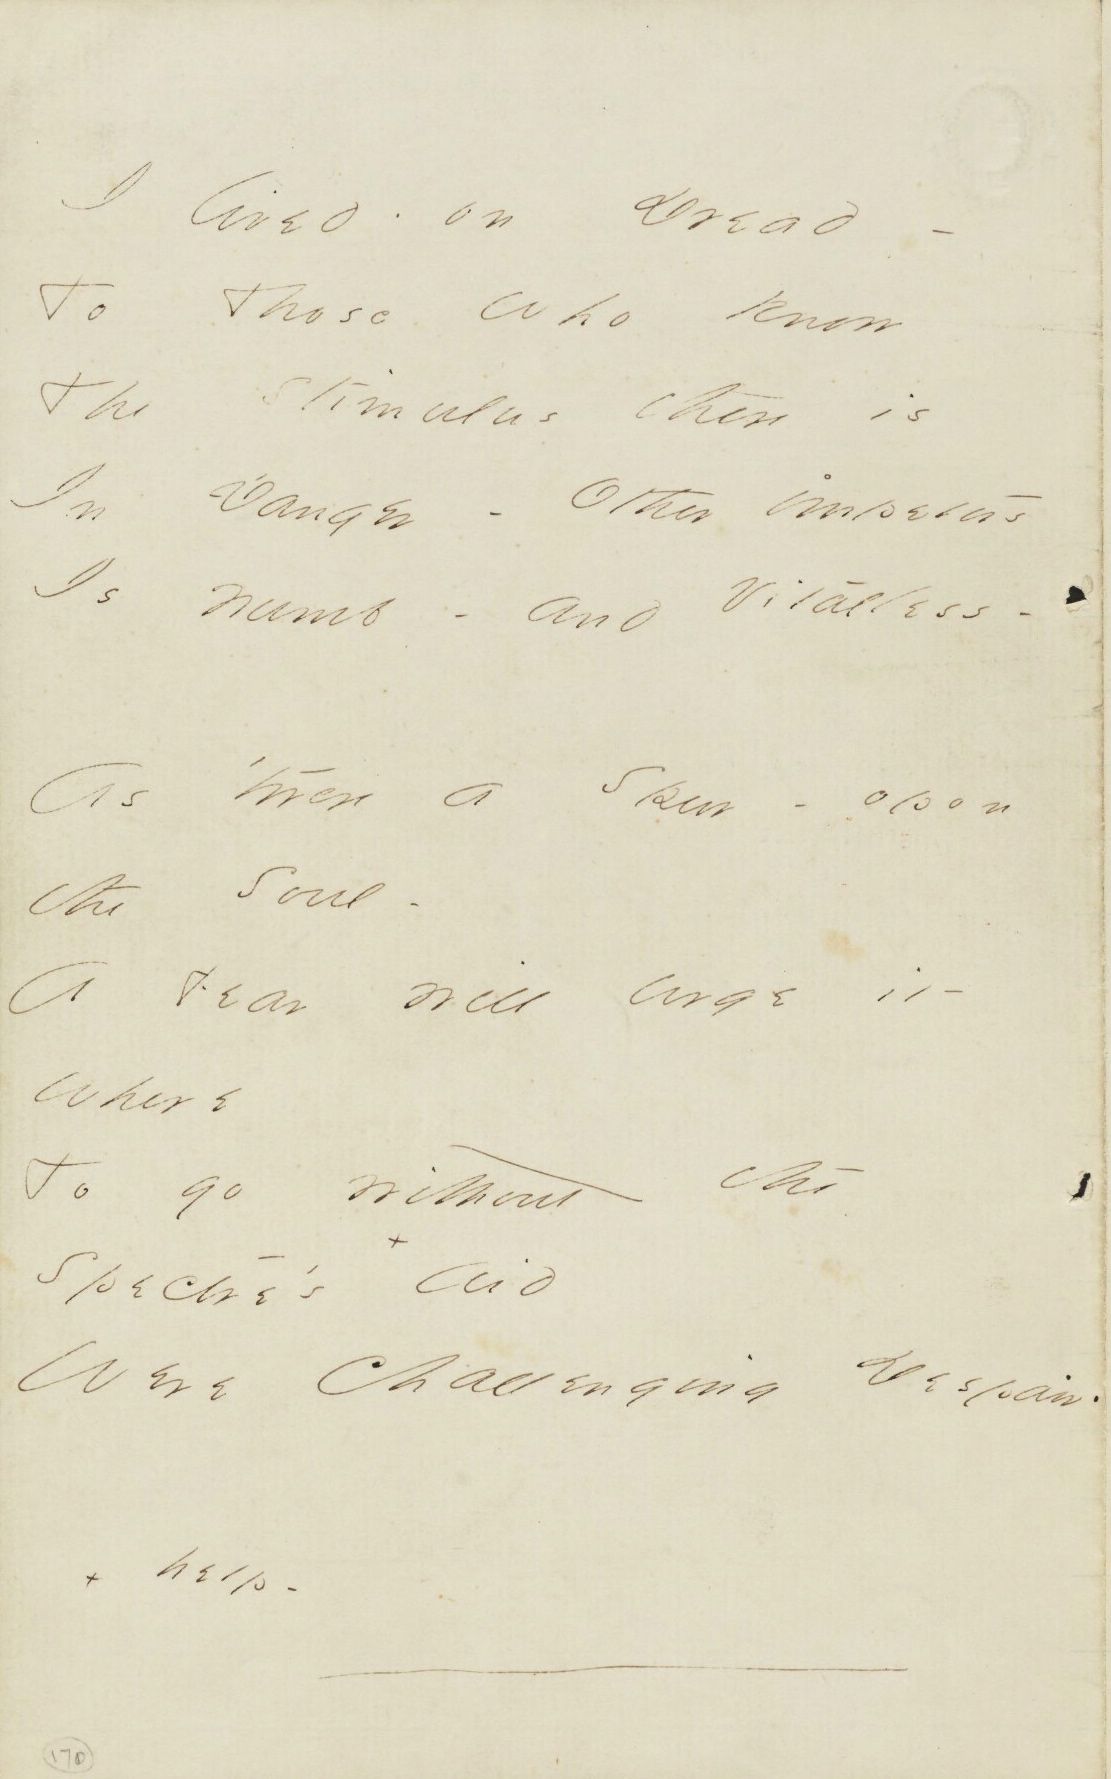 I lived on Dread -
To Those who know
The Stimulus there is
In Danger - Other impetus
Is numb - and Vitalless -
As 'twere a Spur - opon
the Soul -
A Fear will urge it
where
To go without the
Spectre's + aid
Were Challenging Despair.
+ help -
170